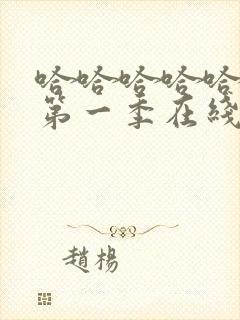 哈哈哈哈哈
第一季在綫
趙楊